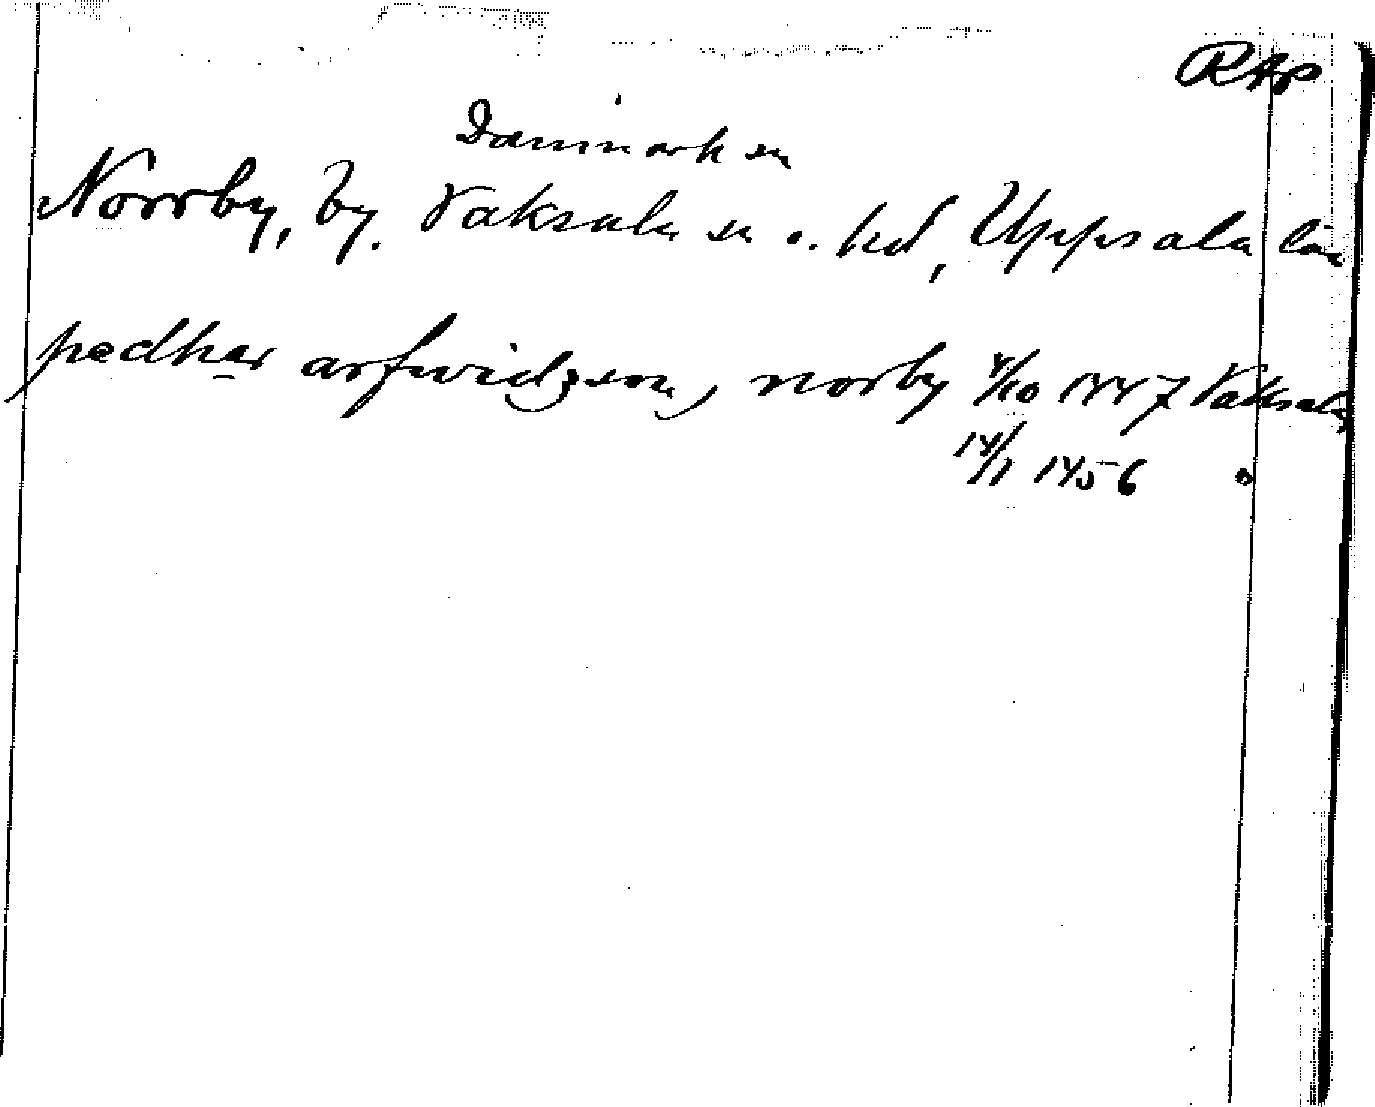 RAp
Danmark sn
Norrby, by. Vaksala sn o. hd, Uppsala län
pædhær arfwidzson, norby 4/10 1447 Vaksala
14/1 1456